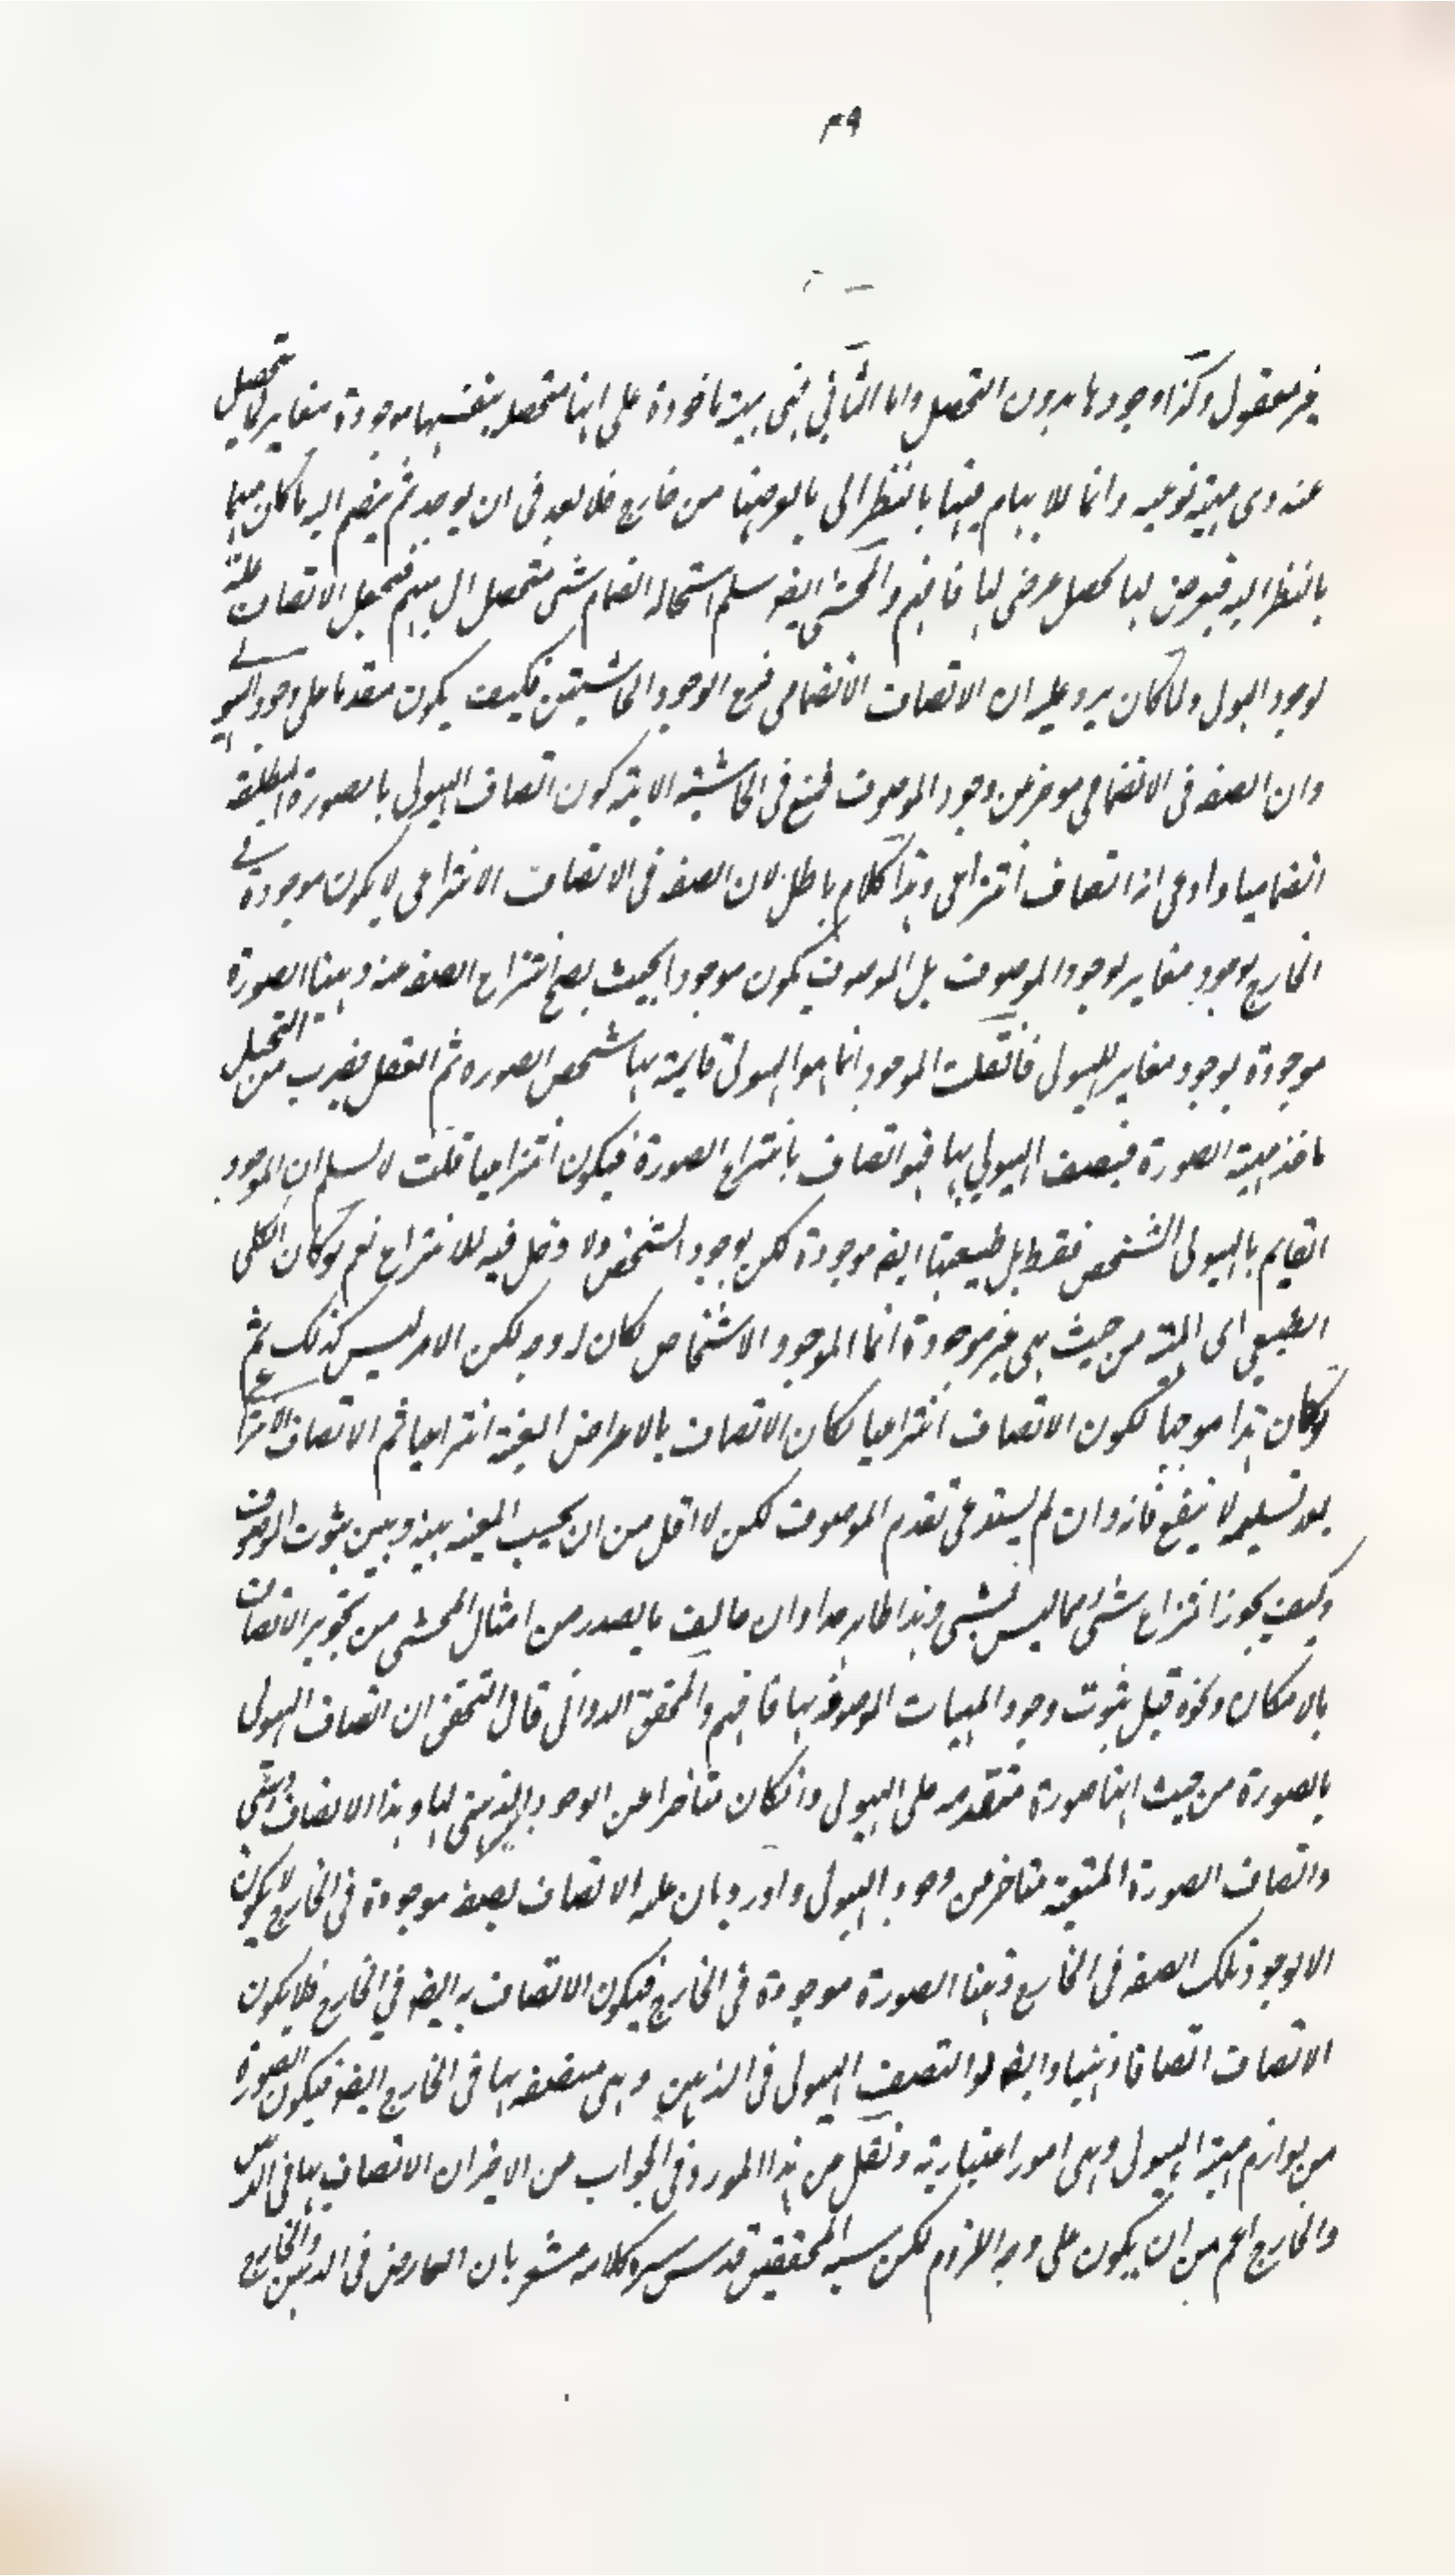 ٤٩
غير معقول وكذا وجودها بدون التحصل واما الثاني فهي مهية ماخوذة على انها متحصلة بنفسها موجودة مغايرة لما يتحصل
عنه وهي مهية نوعية وانما للابهام فيها بالنظر الى ما يعرضها من خارج فلا بعد في ان يوجد ثم ينضم اليه ما كان مبهما
بالنظر اليه فيعرض لها تحصل عرضي لها فافهم والمحشي ايضه سلم استحالة انضمام شئ متحصل الى مبهم فجعل الاتصاف علة
لوجود الهيولى ولما كان يرد عليه ان الاتصاف الانضمامي فرع الوجود الحاشيتين فكيف يكون مقدما على وجود الهيولى
وان الصفة في الانضمامي موخر عن وجود الموصوف فمنع في الحاشية الاتية كون اتصاف الهيولى بالصورة المطلقة
انضماميا وادعى انه اتصاف انتزاعي وهذا كلام باطل لان الصفة في الاتصاف الانتزاعي لا يكون موجودة في
الخارج بوجود مغاير لوجود الموصوف بل الموصوف يكون موجودا بحيث يصح انتزاع الصفة عنه وههنا الصورة
موجودة بوجود مغاير للهيولى فان قلت الموجود انما هو الهيولى قايمة بها شخص الصورة ثم العقل بضرب من التحليل
ياخذ مهية الصورة فيصف الهيولى بها فهو اتصاف بانتزاع الصورة فيكون انتزاعيا قلت لا نسلم ان الموجود
القايم بالهيولى الشخص فقط بل طبيعتها ايضه موجودة لكن بوجود الشخص ولا دخل فيه للانتزاع نعم لو كان الكلي
الطبيعي اي المهية من حيث هي غير موجودة انما الموجود الاشخاص لكان له وجه لكن الامر ليس كذلك ثم
لو كان هذا موجبا لكون الاتصاف انتزاعيا لكان الاتصاف بالاعراض العينية انتزاعيا ثم الاتصاف الانتزاعي
بعد تسليمه لا ينفع فانه وان لم يستدعي تقدم الموصوف لكن لا اقل من ان يجب المعية بينه وبين ثبوت الموصوف
وكيف يجوز انتزاع شئ مما ليس بشئ وهذا ظاهر جدا وان ما يصدر من امثال المحشي من تجويز الاتصاف
بالامكان ونحوه قبل ثبوت وجود المهيات الموصوفة بها فافهم والمحقق الدواني قال التحقق ان اتصاف الهيولى
بالصورة من حيث انها صورة متقدمة على الهيولى وان كان متاخرا عن الوجود الذهني لها وهذا الاتصاف ذهني
واتصاف الصورة المتعينة متاخر عن وجود الهيولى واورد بان علة الاتصاف بصفة موجودة في الخارج لا يكون
الا بوجود تلك الصفة في الخارج وههنا الصورة موجودة في الخارج فيكون الاتصاف به ايضه في الخارج فلا يكون
الاتصاف اتصافا ذهنيا وايضه لو اتصف الهيولى في الذهن وهي متصفة بها في الخارج ايضه فيكون الصورة
من لوازم مهية الهيولى وهي امور اعتبارية ونقل عن هذا المورد في الجواب عن الاخر ان الاتصاف بها في الذهن
والخارج اعم من ان يكون على وجه اللزوم لكن سيد المحققين قدس سره كلامه مشعر بان العارض في الذهن والخارج